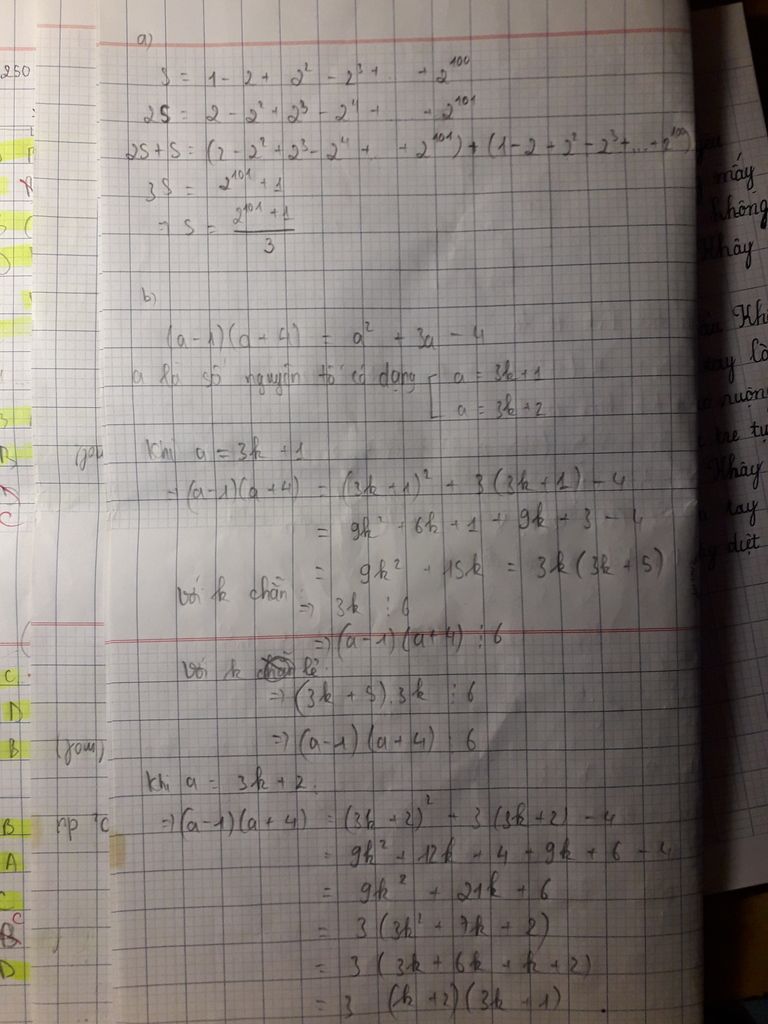 a)
S = 1 - 2 + 2² - 2³ + ... + 2¹⁰⁰
2S = 2 - 2² + 2³ - 2⁴ + ... + 2¹⁰¹
2S + S = (2 - 2² + 2³ - 2⁴ + ... + 2¹⁰¹) + (1 - 2 + 2² - 2³ + ... + 2¹⁰⁰)
3S = 2¹⁰¹ + 1
⇒ S = (2¹⁰¹ + 1)/3
b)
(a - 1)(a + 4) = a² + 3a - 4
a là số nguyên tố có dạng [ a = 3k + 1
a = 3k + 2
Khi a = 3k + 1
⇒ (a - 1)(a + 4) = (3k + 1)² + 3(3k + 1) - 4
= 9k² + 6k + 1 + 9k + 3 - 4
= 9k² + 15k = 3k(3k + 5)
Với k chẵn ⇒ 3k ⋮ 6
⇒ (a - 1)(a + 4) ⋮ 6
Với k lẻ
⇒ (3k + 5).3k ⋮ 6
⇒ (a - 1)(a + 4) ⋮ 6
Khi a = 3k + 2.
⇒ (a - 1)(a + 4) = (3k + 2)² + 3(3k + 2) - 4
= 9k² + 12k + 4 + 9k + 6 - 4
= 9k² + 21k + 6
= 3(3k² + 7k + 2)
= 3(3k + 6k + k + 2)
= 3 (k + 2)(3k + 1).
250
B
C
C
D
B
B
A
C
D
mấy
không
Khây